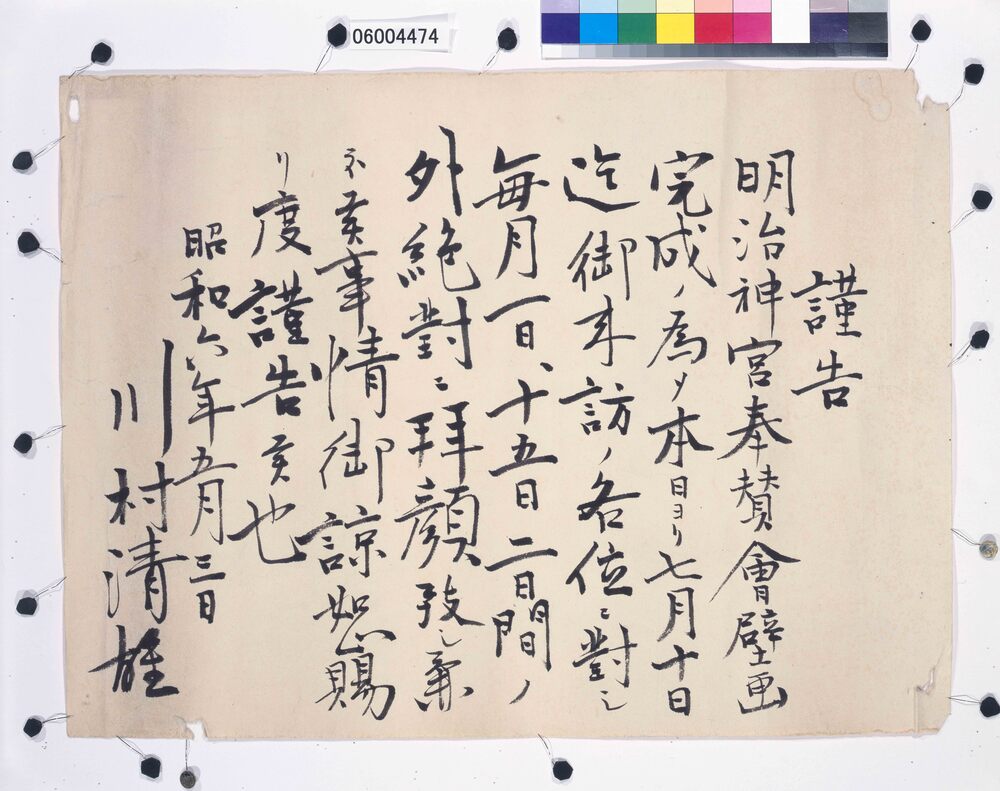 06004474
謹告
明治神宮奉賛會壁画
完成ノ為メ本日ヨリ七月十日
迄御来訪ノ各位ニ對シ
毎月一日、十五日二日間ノ
外絶對ニ拝顔致シ兼
ネ候事情御諒恕賜
リ度謹告候也
昭和六年五月三日
川村清雄